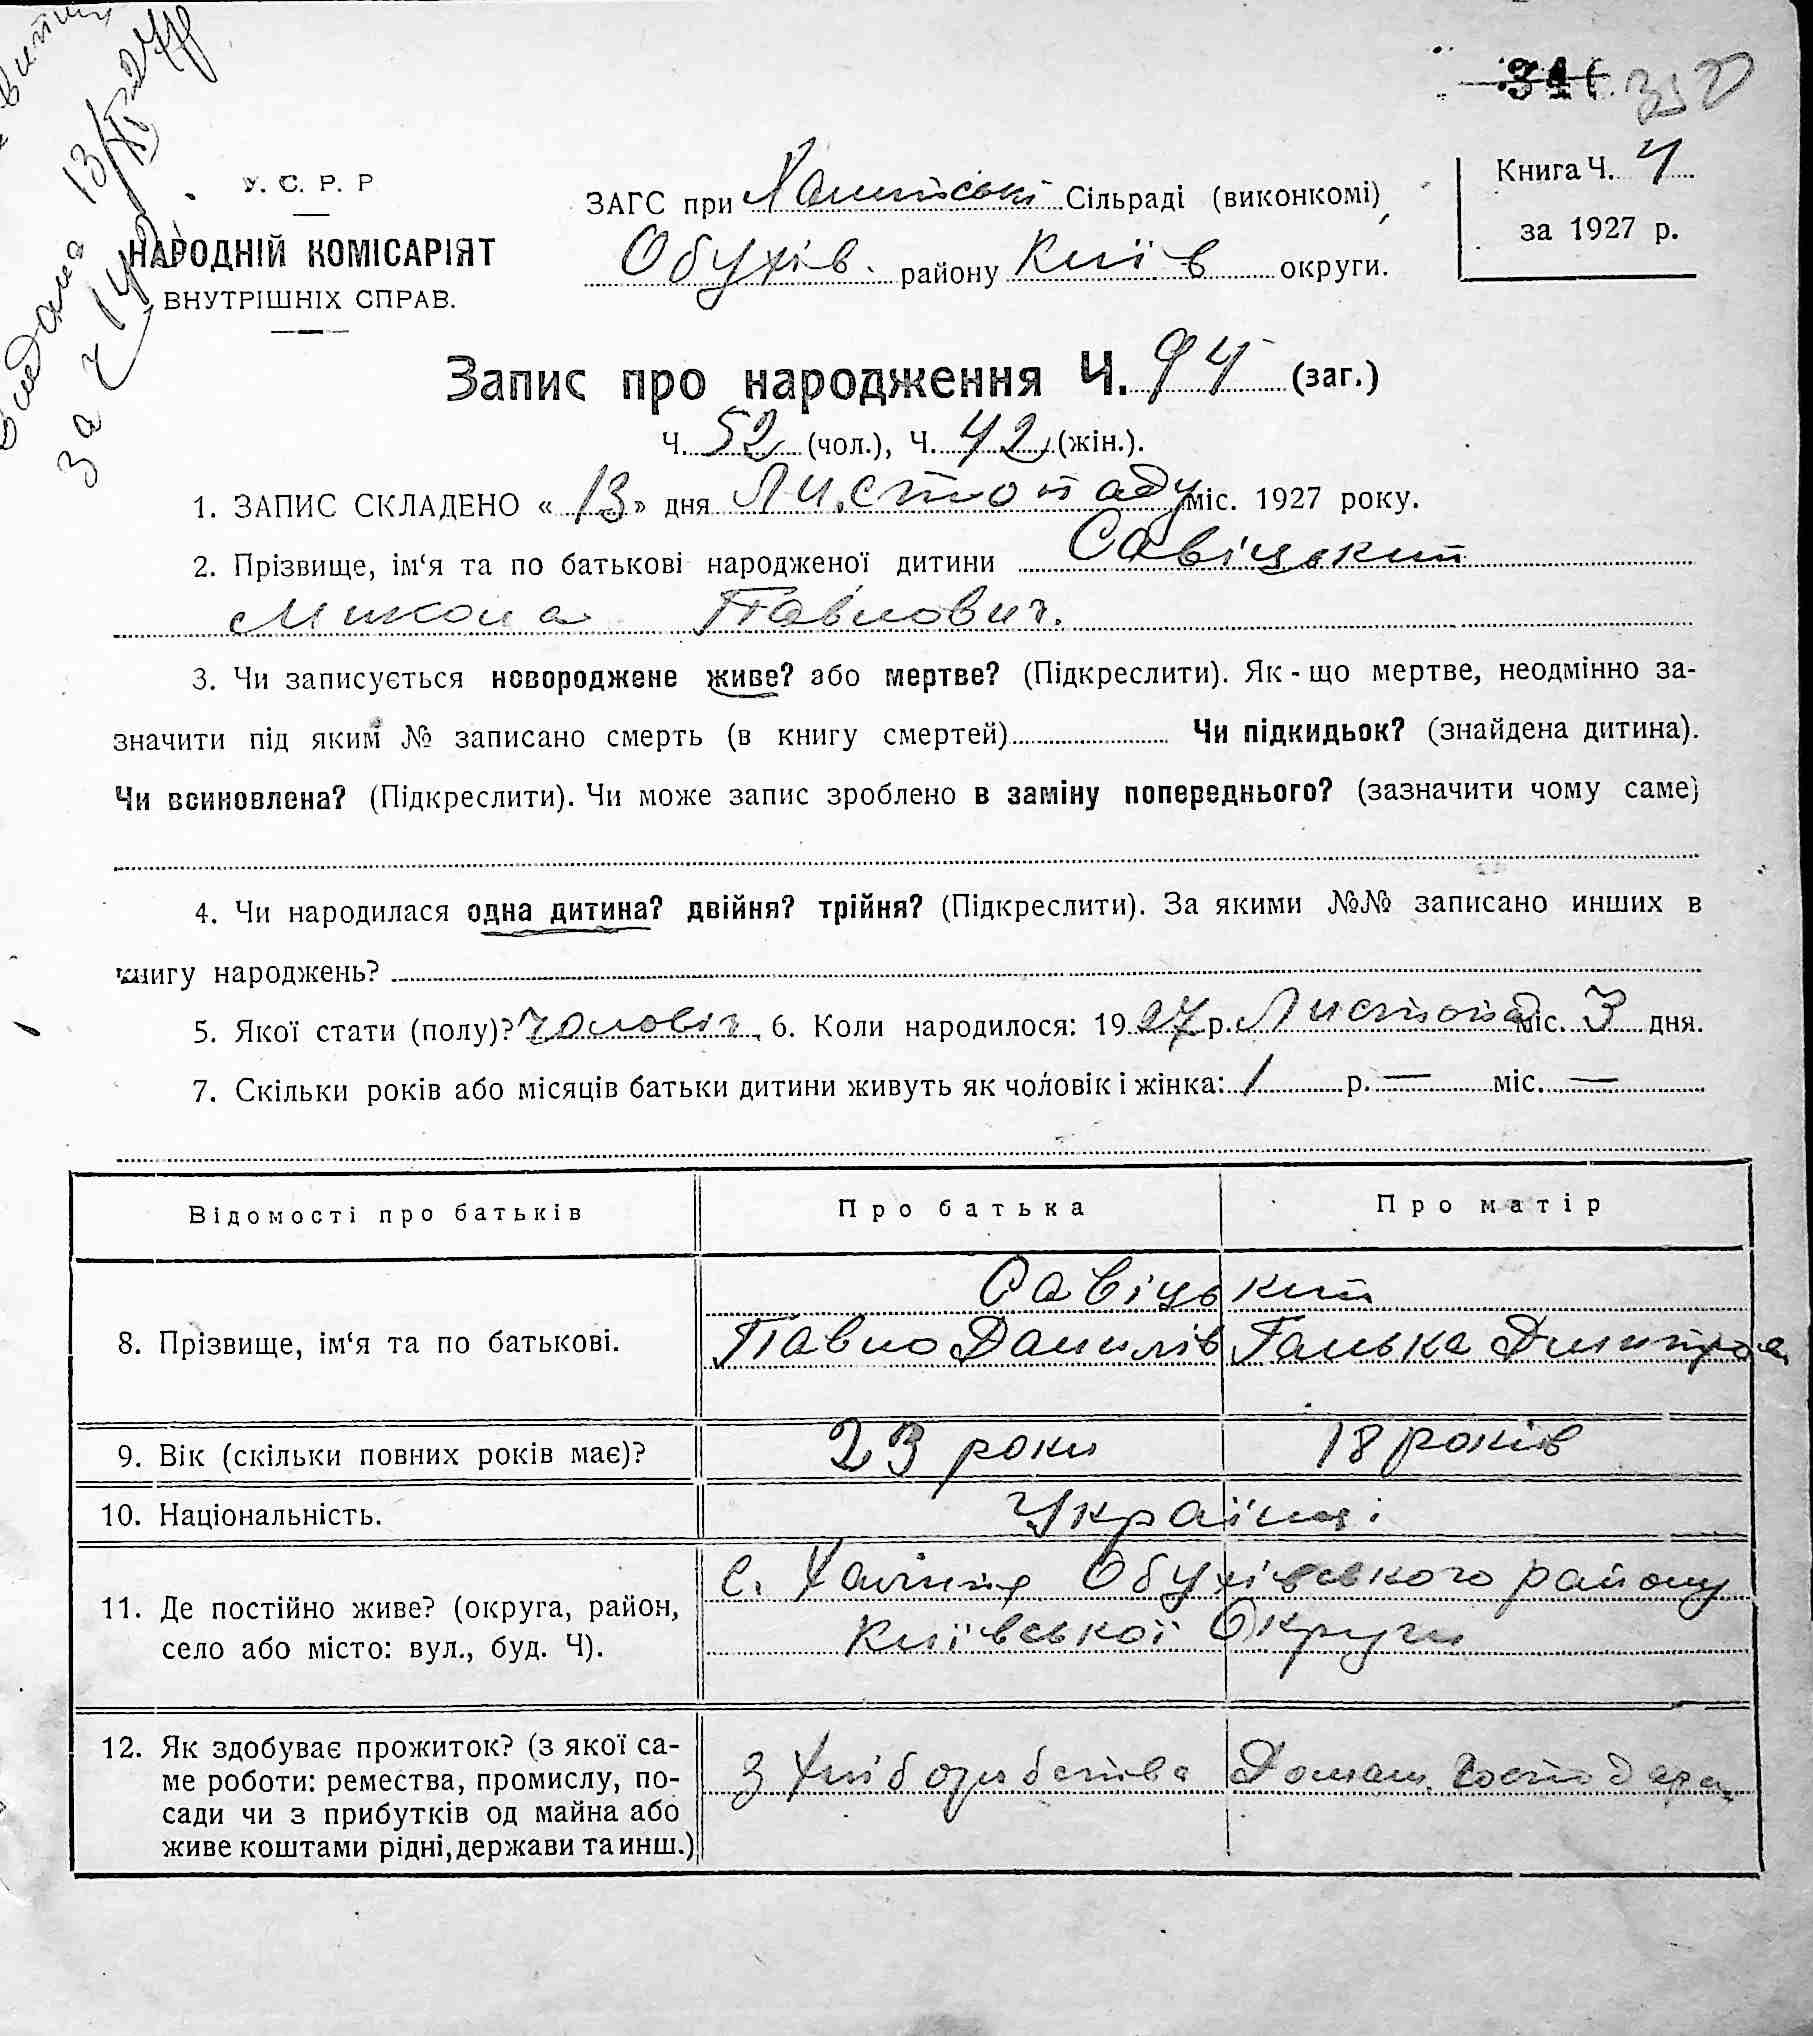 Видана 13/XI-27р
за ч 142
У. С. Р. Р
НАРОДНІЙ КОМІСАРІЯТ
ВНУТРІШНІХ СПРАВ.
ЗАГС при Халепській Сільраді (виконкомі)
Обухів. району Київ округи.
Книга Ч. 4
за 1927 р.
Запис про народження Ч. 94 (заг.)
Ч. 52 (чол.), Ч. 42 (жін.).
1. ЗАПИС СКЛАДЕНО « 13 » дня Листопаду міс. 1927 року.
2. Прізвище, ім‘я та по батькові народженої дитини Савіцький
Микола Павлович.
3. Чи записується новороджене живе? або мертве? (Підкреслити). Як-що мертве, неодмінно за-
значити під яким № записано смерть (в книгу смертей) Чи підкидьок? (знайдена дитина).
Чи всиновлена? (Підкреслити). Чи може запис зроблено в заміну попереднього? (зазначити чому саме)
4. Чи народилася одна дитина? двійня? трійня? (Підкреслити). За якими №№ записано инших в
книгу народжень?
5. Якої стати (полу)? чоловіч. 6. Коли народилося: 1927 р. Листопад міс. 3 дня.
7. Скільки років або місяців батьки дитини живуть як чоловік і жінка: 1 р. — міс. —
Відомості про батьків Про батька Про матір
Савіцький
8. Прізвище, ім‘я та по батькові. Павло Данилів Ганька Дмитров
9. Вік (скільки повних років має)? 23 роки 18 років
10. Національність. Українці
с. Халіпя Обухівського району
11. Де постійно живе? (округа, район,
Київської Округи
село або місто: вул., буд. Ч).
12. Як здобуває прожиток? (з якої са-
ме роботи: ремества, промислу, по- З Хліборобства Домаш. Господарка
сади чи з прибутків од майна або
живе коштами рідні, держави та инш.)